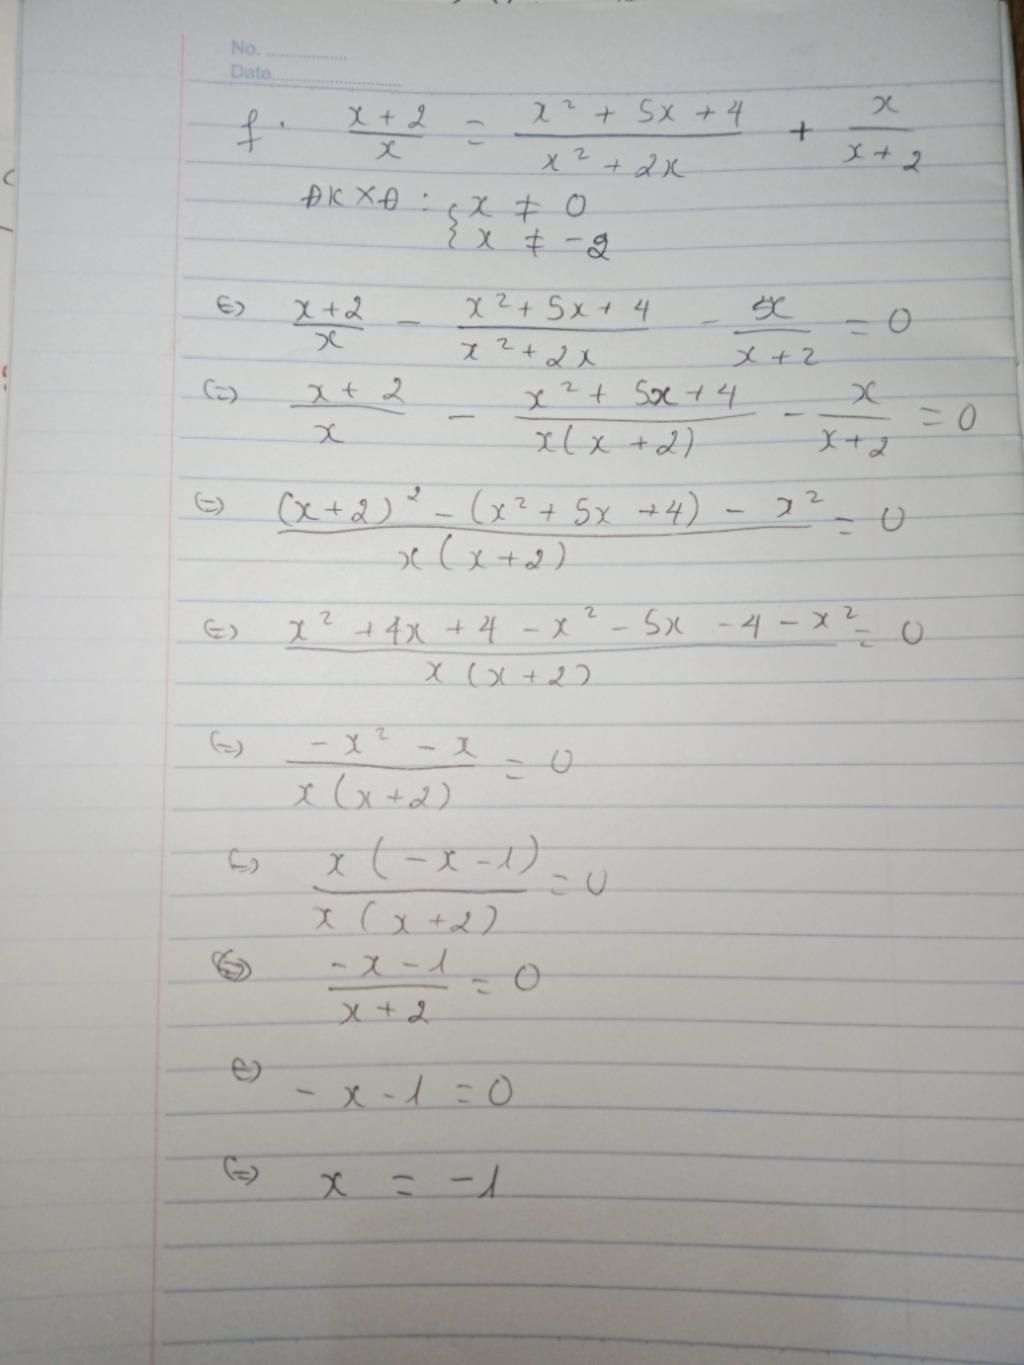 No. ..................
Date..............................
f. (x + 2)/x = (x² + 5x + 4)/(x² + 2x) + x/(x + 2)
ĐKXĐ : { x ≠ 0
{ x ≠ -2
(=) (x+2)/x - (x² + 5x + 4)/(x² + 2x) - x/(x + 2) = 0
(=) (x + 2)/x - (x² + 5x + 4)/(x(x + 2)) - x/(x + 2) = 0
(=) ((x+2)² - (x² + 5x + 4) - x²)/(x(x+2)) = 0
(=) (x² + 4x + 4 - x² - 5x - 4 - x²)/(x(x+2)) = 0
(=) (-x² - x)/(x(x+2)) = 0
(=) (x(-x-1))/(x(x+2)) = 0
(=) (-x-1)/(x+2) = 0
(=) -x-1 = 0
(=) x = -1